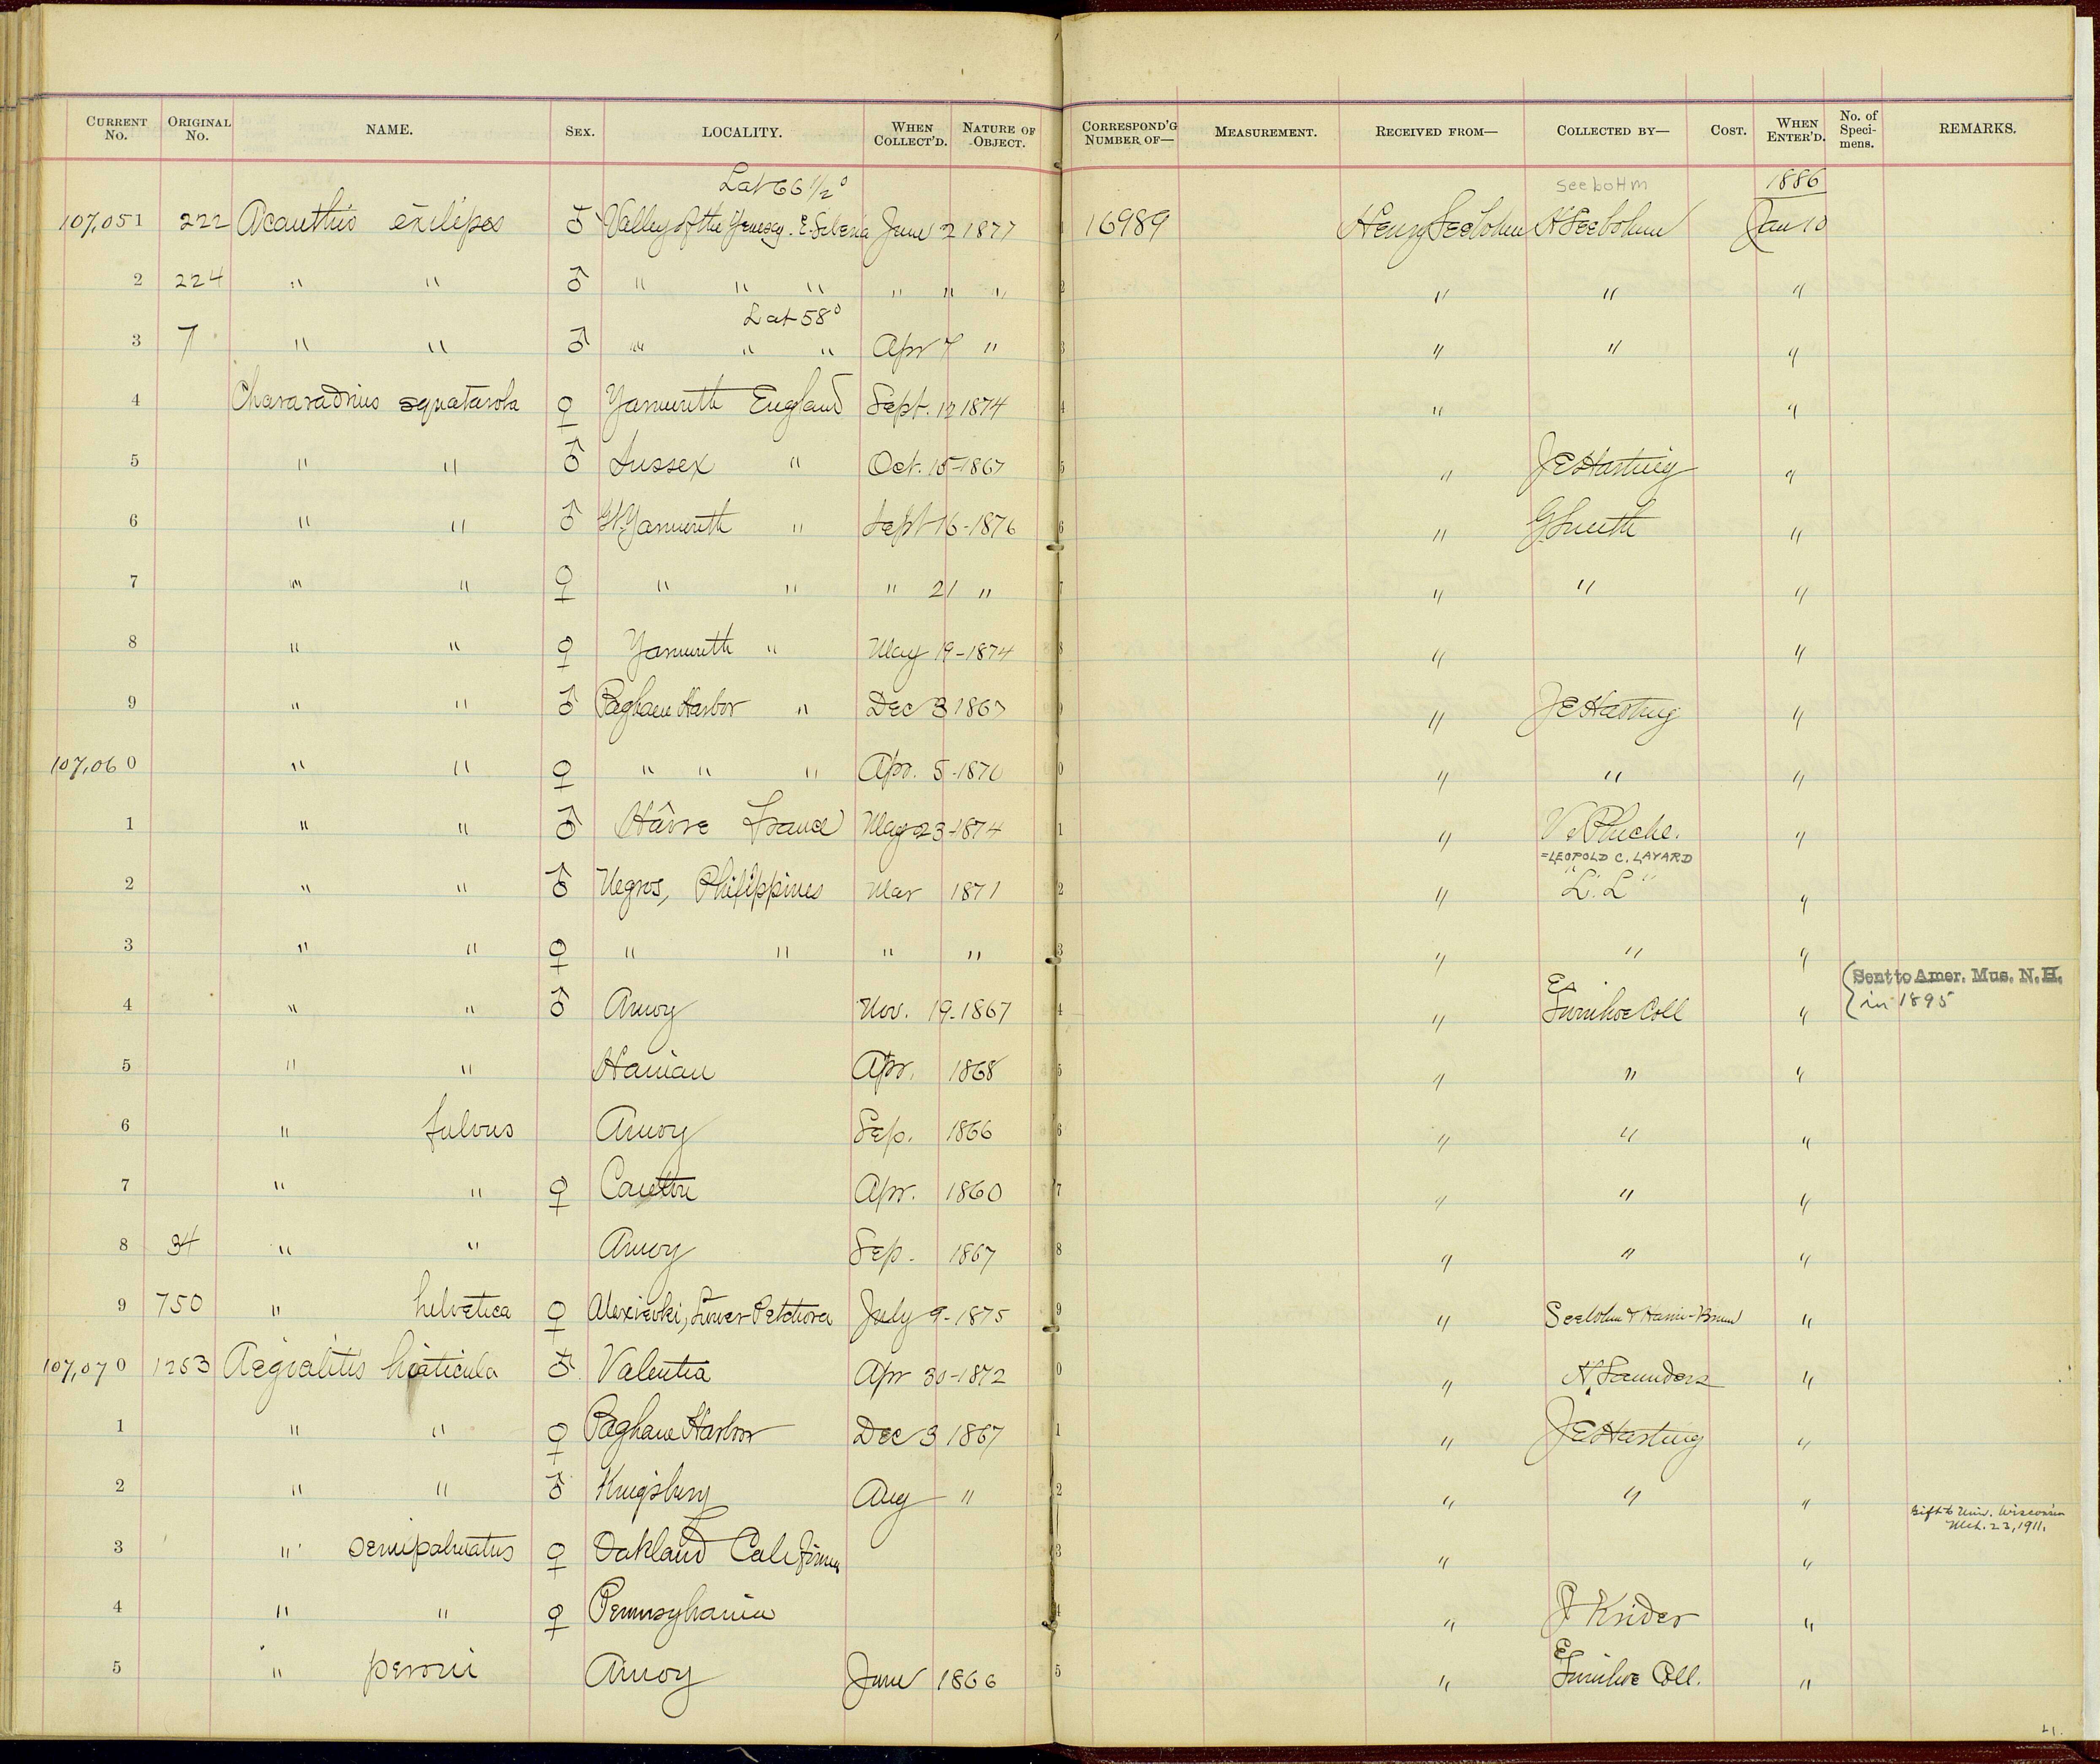 CURRENT No. ORIGINAL No. NAME. SEX. LOCALITY. WHEN COLLECT'D. NATURE OF OBJECT. CORRESPOND'G NUMBER OF— MEASUREMENT. RECEIVED FROM— COLLECTED BY— COST. WHEN ENTER'D. No. of Speci-mens. REMARKS.
Lat 66 1/2° Seebohm 1886
107,051 222 Acanthis exilipes ♂ Valley of the Yenesay. E. Siberia June 2 1877 1 16989 Henry Seebohm H Seebohm Jan 10
2 224 " " ♂ " " " " " " 2 " " "
Lat 58°
3 7 " " ♂ " " " Apr 7 " 3 " " "
4 Chararadrius squatarola ♀ Yarmouth England Sept. 12 1874 4 " "
5 " " ♂ Sussex " Oct. 15-1867 5 " J E Harting "
6 " " ♂ Gt. Yarmouth " Sept 16-1876 6 " G Smith "
7 " " ♀ " " " 21 " 7 " " "
8 " " ♀ Yarmouth " May 19-1874 8 " "
9 " " ♂ Pagham Harbor " Dec 3 1867 9 " J E Harting "
107,060 " " ♀ " " " Apr. 5-1870 0 " " "
1 " " ♂ Hâvre France May 23-1874 1 " "
=LEOPOLD C. LAYARD
2 " " ♂ Negros, Philippines Mar 1871 2 " "L. L" "
3 " " ♀ " " " " 3 " " "
4 " " ♂ Amoy Nov. 19-1867 4 " Ex Swinhoe Coll " {Sent to Amer. Mus. N. H.
in 1895
5 " " Hainan Apr. 1868 5 " " "
6 " fulvus Amoy Sep. 1866 6 " " "
7 " " ♀ Canton Apr. 1860 7 " " "
8 34 " " Amoy Sep. 1867 8 " " "
9 750 " helvetica ♀ Alexievki, Lower Petchora July 9-1875 9 " Seebohm & Harvie-Brown "
107,070 1253 Aegialitis hiaticula ♂ Valentia Apr 30-1872 0 " H. Saunders "
1 " " ♀ Pagham Harbor Dec 3 1867 1 " J E Harting "
2 " " ♂ Kingsbury Aug " 2 " " "
Gift to Univ. Wisconsin
Mch. 23, 1911.
3 " semipalmatus ♀ Oakland California 3 " "
4 " " ♀ Pennsylvania 4 " J Krider "
5 " peronii Amoy June 1866 5 " Ex Swinhoe Coll. "